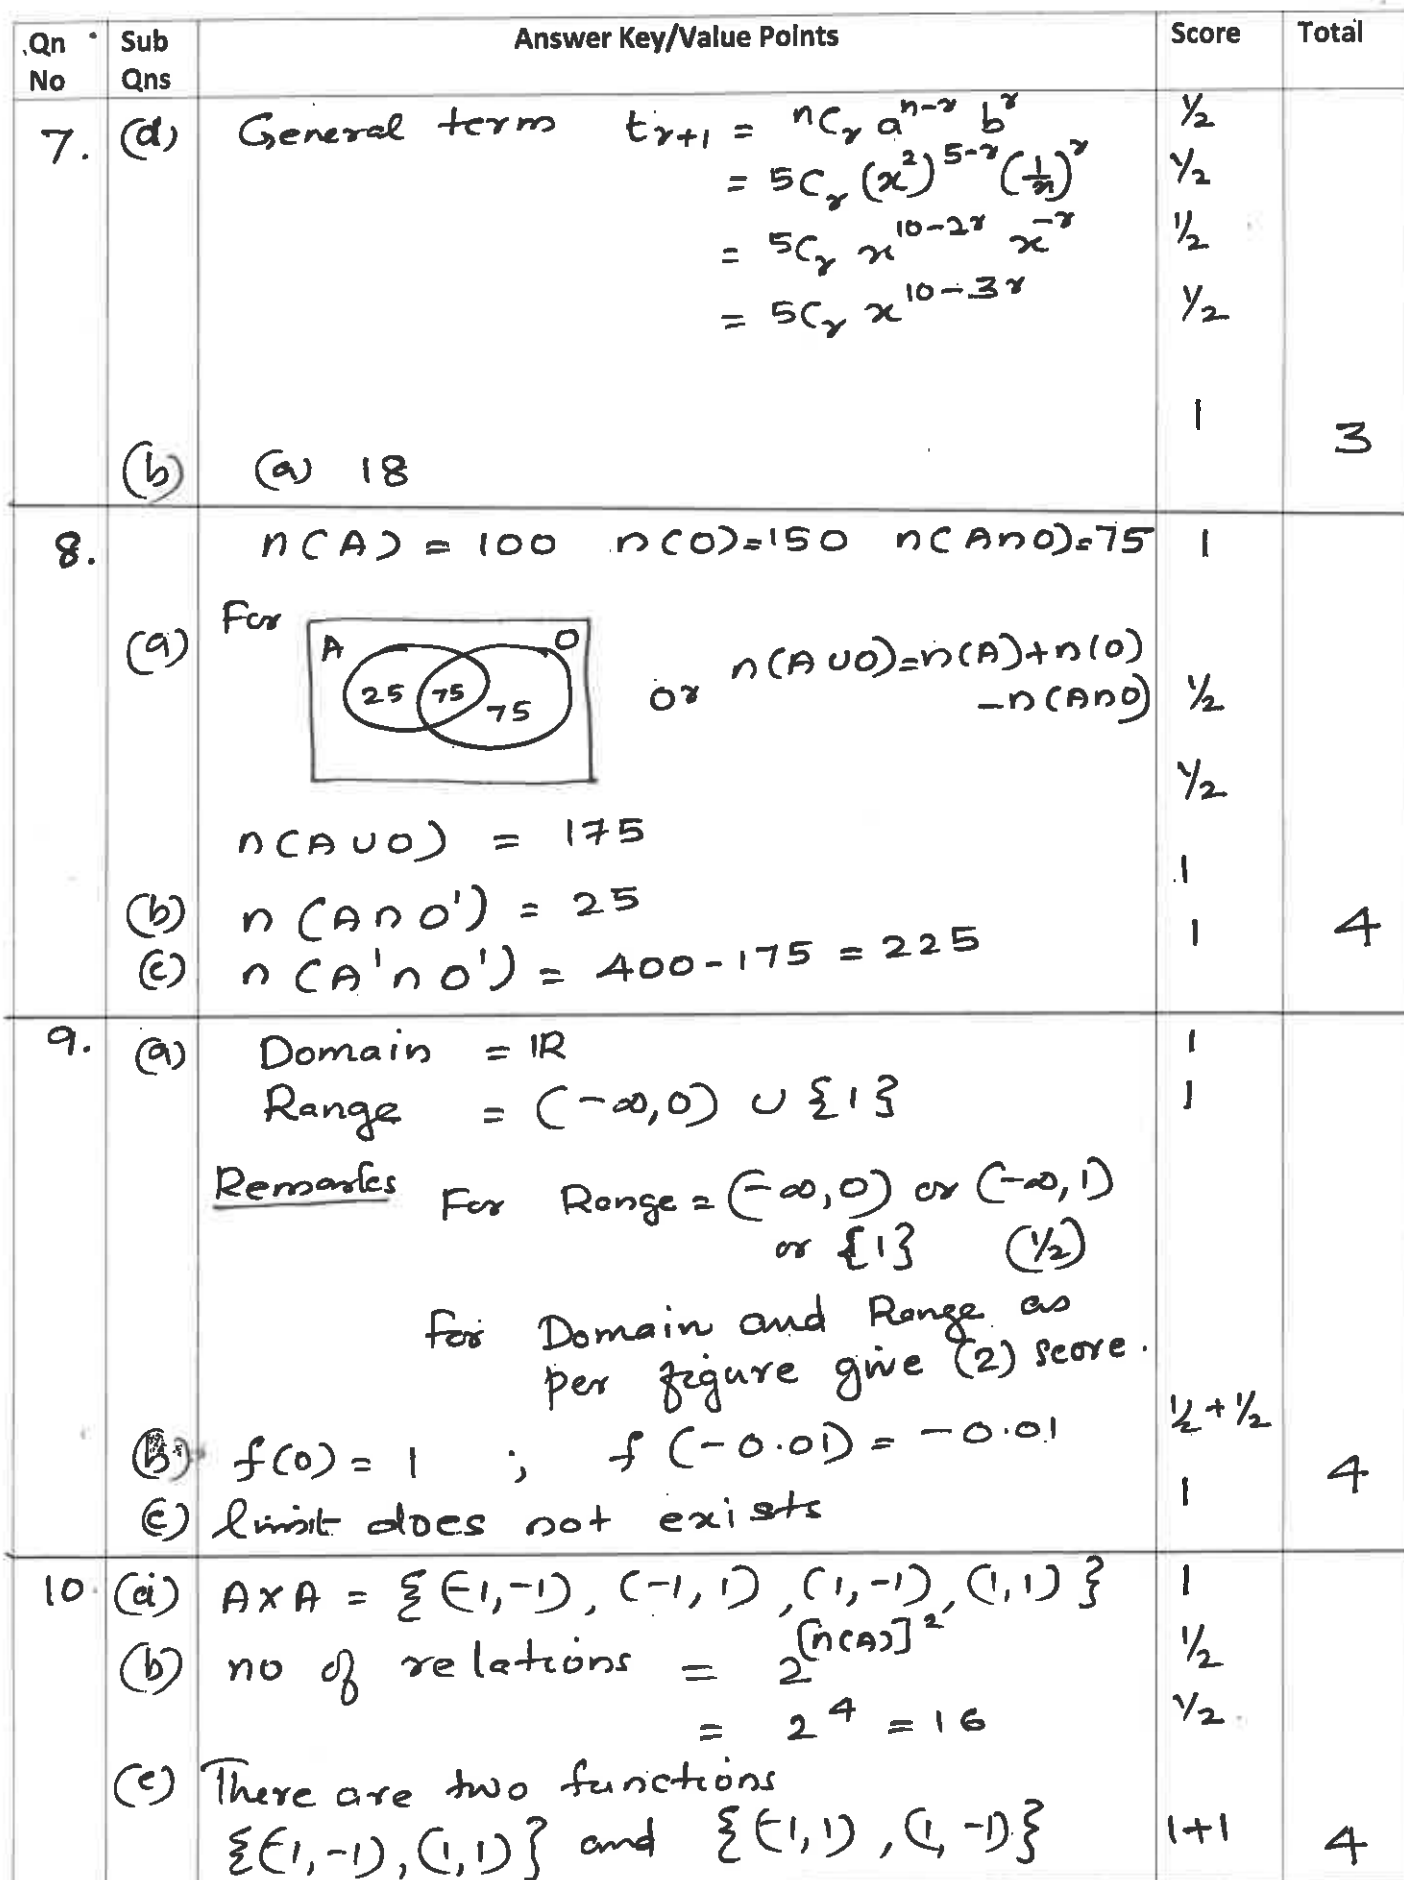 Qn No Sub Qns Answer Key/Value Points Score Total
7. (a) General term t_{r+1} = nC_r a^{n-r} b^r ½
= 5C_r (x²)^{5-r} (1/x)^r ½
= 5C_r x^{10-2r} x^{-r} ½
= 5C_r x^{10-3r} ½
1 3
(b) (a) 18
8. n(A) = 100 n(O)=150 n(A∩O)=75 1
(a) For A O 25 75 75 or n(A∪O)=n(A)+n(O)
-n(A∩O) ½
½
n(A∪O) = 175
1
(b) n(A∩O') = 25
(c) n(A'∩O') = 400-175 = 225 1 4
9. (a) Domain = IR 1
Range = (-∞,0) ∪ {1} 1
Remarks For Range = (-∞,0) or (-∞,1)
or {1} (½)
for Domain and Range as
per figure give (2) score.
(b) f(0) = 1 ; f(-0.01) = -0.01 ½+½
(c) limit does not exists 1 4
10. (a) A×A = {(-1,-1), (-1,1), (1,-1), (1,1)} 1
(b) no of relations = 2^{[n(A)]²} ½
= 2⁴ = 16 ½
(c) There are two functions
{(-1,-1),(1,1)} and {(-1,1),(1,-1)} 1+1 4